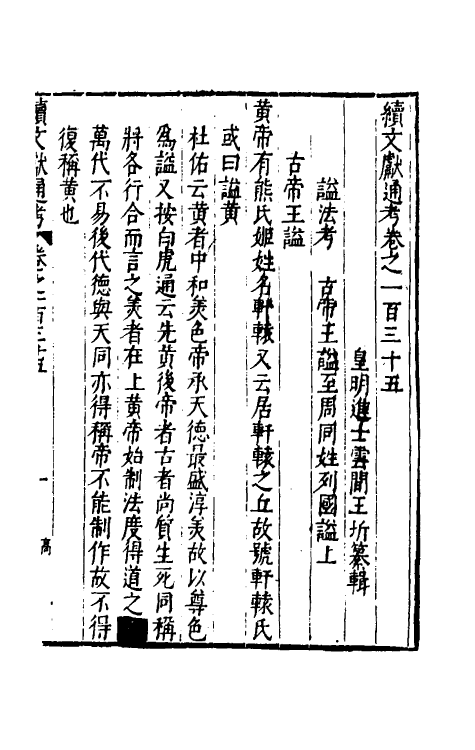 續文獻通考卷之一百三十五
皇明進士雲間王圻纂輯
諡法考　古帝王諡至周同姓列國諡上
古帝王諡
黄帝有熊氏姬姓名軒轅又云居軒轅之丘故號軒轅氏
或曰諡黄
杜佑云黄者中和美色帝承天德最盛淳美故以尊色
為諡又按白虎通云先黄後帝者古者尚質生死同稱
將各行合而言之美者在上黄帝始制法度得道之
萬代不易後代德與天同亦得稱帝不能制作故不得
復稱黄也
續文獻通考　卷之一百三十五　一　高